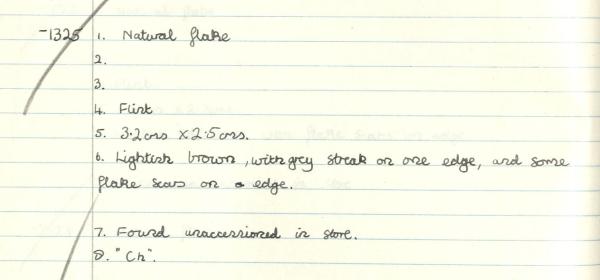 -1325 1. Natural flake
2.
3.
4. Flint
5. 3.2cms x 2.5cms.
6. Lightish brown, with grey streak on one edge, and some
flake scars on edge.
7. Found unaccessioned in store.
8. "Ch".